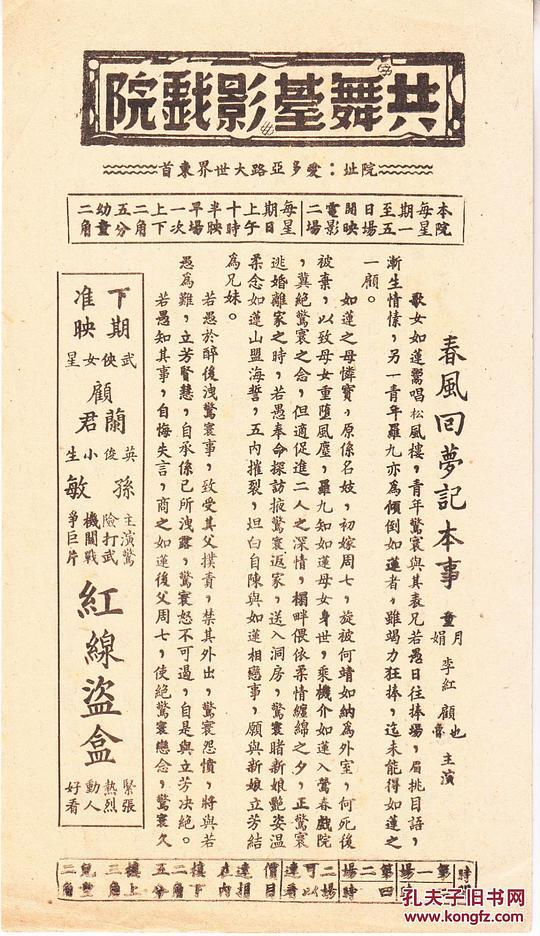 共舞臺影戲院
院址：愛多亞路大世界東首
本院每星期一至五日場開映電影二場每星期日上午十時半映早場一次上下二角五分幼童二角
春風回夢記本事
童月娟 李紅 顧也魯 主演
歌女如蓮鬻唱松風樓，青年驚寰與其表兄若愚日往捧場，眉挑目語，
漸生情愫，另一青年羅九亦為傾倒如蓮者，雖竭力狂捧，迄未能得如蓮之
一顧。
如蓮之母憐寶，原係名妓，初嫁周七，旋被何靖如納為外室，何死後
被棄，以致母女重墮風塵，羅九知如蓮母女身世，乘機介如蓮入鶯春戲院
，冀絕驚寰之念，但適促進二人之深情，榻畔偎依柔情纏綿之夕，正驚寰
逃婚離家之時，若愚奉命探訪掖驚寰返家，送入洞房，驚寰睹新娘艷姿温
柔念如蓮山盟海誓，五內摧裂，坦白自陳與如蓮相戀事，願與新娘立芳結
為兄妹。
若愚於醉後洩驚寰事，致受其父撲責，禁其外出，驚寰怨憤，將與若
愚為難，立芳賢慧，自承係已所洩露，驚寰怒不可遏，自是與立芳决絕。
若愚知其事，自悔失言，商之如蓮後父周七，使絕驚寰戀念，驚寰久
下期准映
武俠女星
顧蘭君
英俊小生
孫敏
主演驚險打武機關戰爭巨片
紅線盜盒
緊張熱烈動人好看
二場可以連看價目
樓下二角五分樓上三角兒童二角
孔夫子旧书网
www.kongfz.com